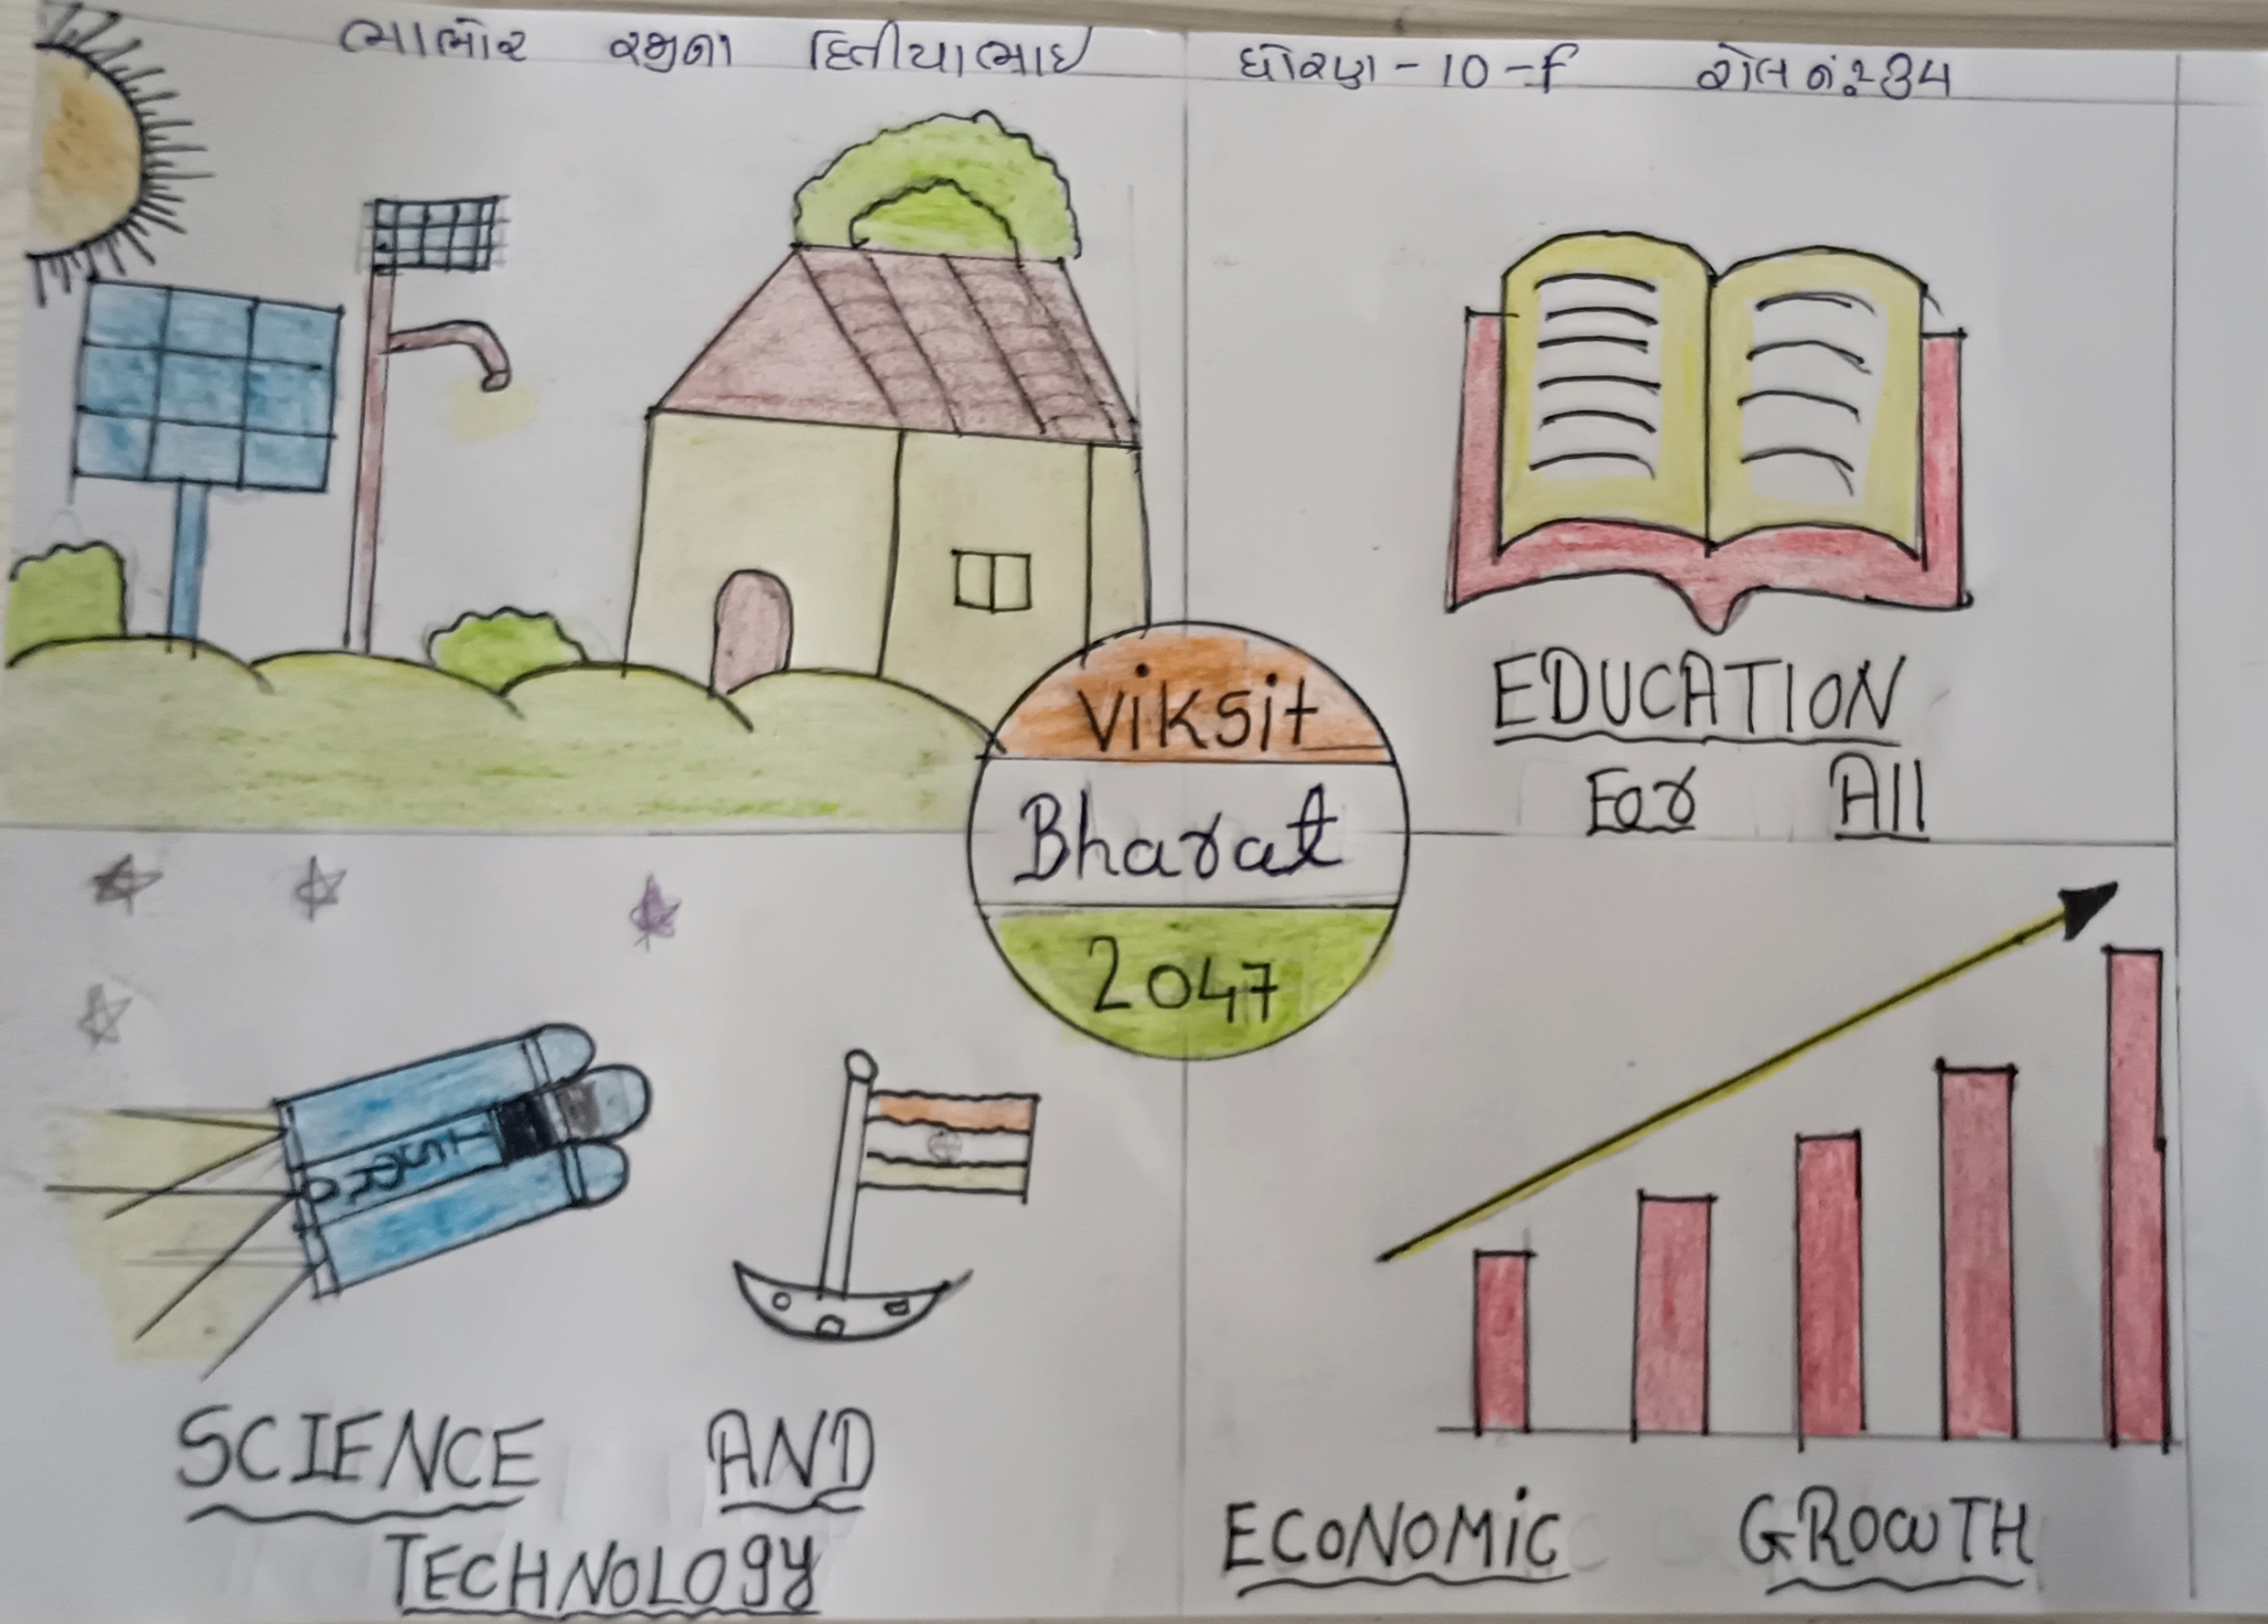 ભાભોર રજીના હિતીયાભાઈ ધોરણ - 10 - f રોલ નં.: 34
EDUCATION
For All
Viksit
Bharat
2047
SCIENCE AND
TECHNOLOGY
ECONOMIC GROWTH